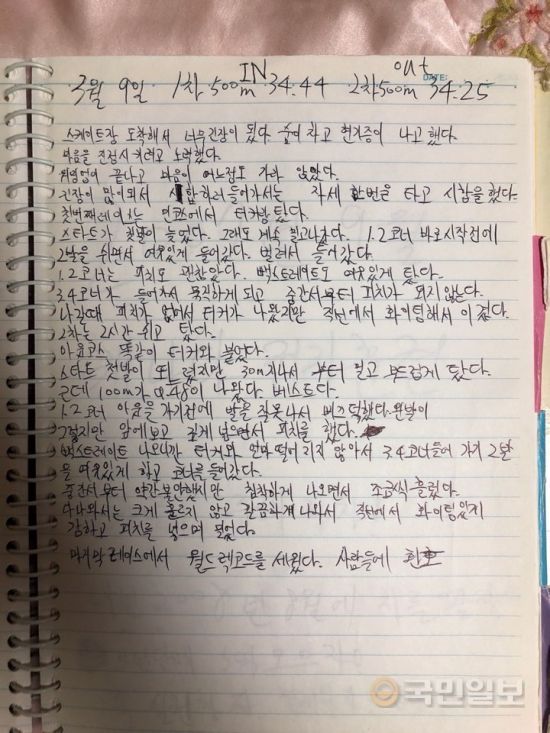 IN out
DATE:
3월 9일 1차 500m 34.44 2차 500m 34.25
스케이트장 도착해서 너무 긴장이 됐다. 숨이 차고 현기증이 나고 했다.
마음을 진정시키려고 노력했다.
워밍업이 끝나고 마음이 어느정도 가라 앉았다.
긴장이 많이되서 시합하러 들어가서는 자세 한번은 타고 시합을 했다.
첫번째레이스는 인코스에서 터커랑 탔다.
스타트가 첫발이 늦었다. 그래도 계속 밀고나갔다. 1.2코너 바로시작전에
2발을 쉬면서 여유있게 들어갔다. 벌려서 들어갔다.
1.2코너는 피치도 괜찮았다. 백스트레이트도 여유있게 탔다.
3.4코너가 들어가서 묵직하게 되고 중간서부터 피치가 되지 않는다.
나갈때 피치가 없어서 터커가 나왔지만 직선에서 화이팅해서 이겼다.
2차는 2시간 쉬고 탔다.
아웃코스 똑같이 터커와 붙었다.
스타트 첫발이 느렸지만 30m지나서부터 밀고 부드럽게 탔다.
근데 100m가 9.48이 나왔다. 베스트다.
1.2코너 아웃을 가기전에 발을 잘못나서 비즈덕했다 왼발이
그렇지만 앞에보고 깊게 넣으면서 피치를 했다.
백스트레이트 나오니까 터커와 얼마 떨어지지 않아서 34코너들어 가기 2발
을 여유있게 하고 코너를 들어갔다.
중간서부터 약간 불안했지만 침착하게 나오면서 조금씩 흘렀다.
다나와서는 크게 흐르지 않고 깔끔하게 나와서 직선에서 화이팅있게
감하고 피치를 넣으며 밀었다.
마지막 레이스에서 월드렉코드를 세웠다. 사람들에 환호
국민일보